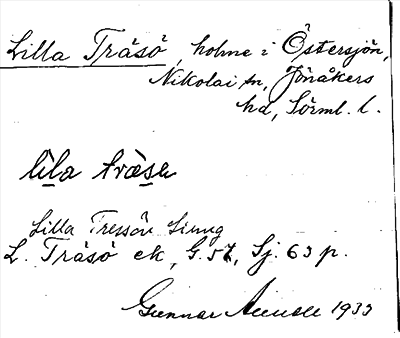 Lilla Träsö, holme i Östersjön,
Nikolai sn, Jönåkers
hd, Sörml. l.
lila træsu
Lilla Tressön Ljung
L. Träsö ek, G. 57, Sj. 63 p.
Gunnar 1933